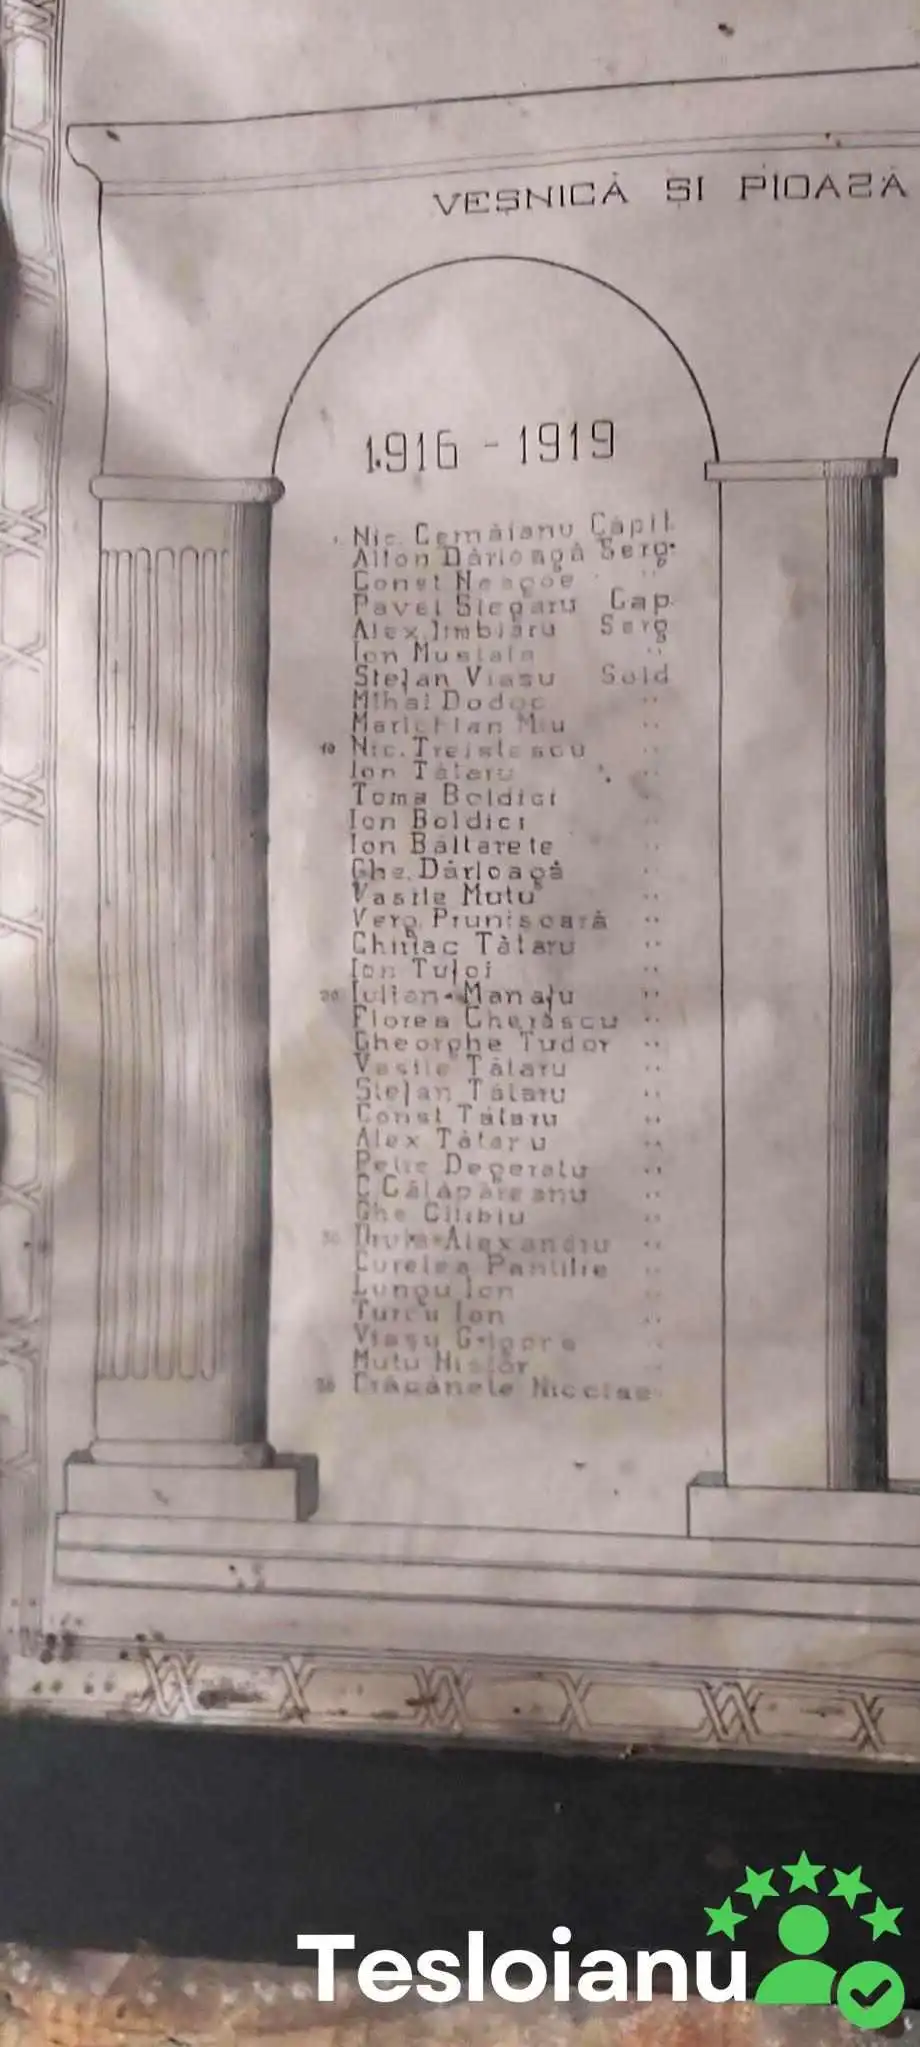 VEȘNICĂ ȘI PIOASĂ
1916 - 1919
Nic. Cămăl Căpit.
Dârloagă Serg.
Const Neagoe "
Pavel Cap.
Alex. Serg
Ion Mustața "
Ștefan Vlașu Sold
Mihai Dodoc "
Miu "
10 Nic. Treistescu "
Ion Tătaru "
Toma Boldici "
Ion Boldici "
Ion Băltarete "
Ghe. Dârloagă "
Vasile Mutu "
Verg. Prunișoară "
Chiriac Tătaru "
Ion "
20 Iulian Manafu "
Florea Cherăscu "
Gheorghe Tudor "
Vasile Tătaru "
Ștefan Tătaru "
Const Tătaru "
Alex Tătaru "
Petre Degeratu "
C. Călăpăreanu "
Ghe Cilibiu "
30 Alexandru "
Curelea Pantilie "
Lungu Ion "
Turcu Ion "
Vlașu Grigore "
Mutu Nistor "
Nicolae "
Tesloianu